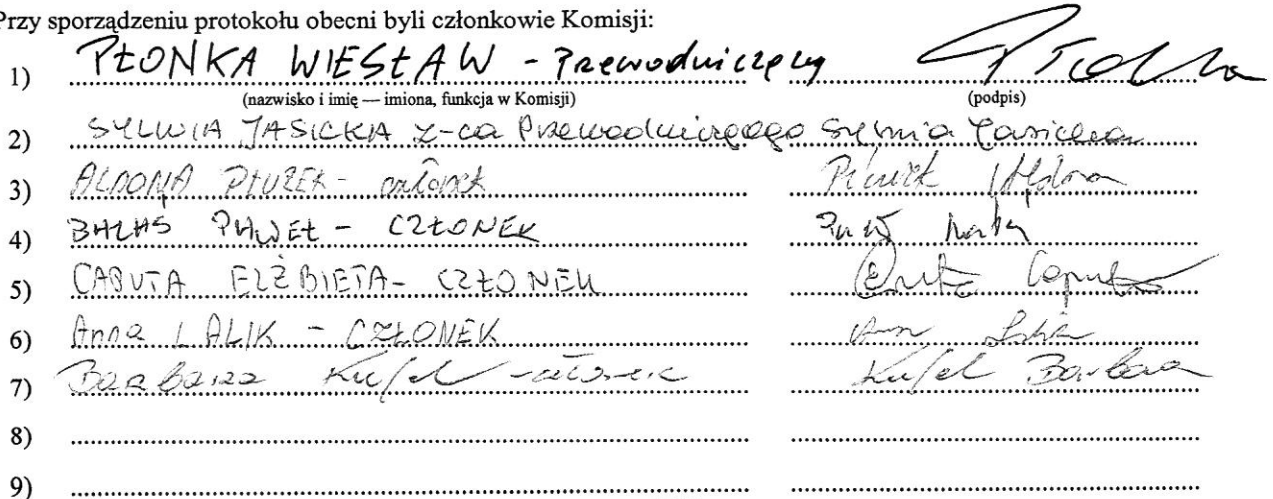 Przy sporządzeniu protokołu obecni byli członkowie Komisji:
1) PŁONKA WIESŁAW - Przewodniczący
(nazwisko i imię — imiona, funkcja w Komisji) (podpis)
2) SYLWIA JASICKA Z-ca Przewodniczącego Sylwia Jasicka
3) ALDONA - członek Aldona
4) PAWEŁ - CZŁONEK
5) ELŻBIETA - CZŁONEK
6) Anna LALIK - CZŁONEK
7) Barbara Kufel - członek Kufel Barbara
8)
9)